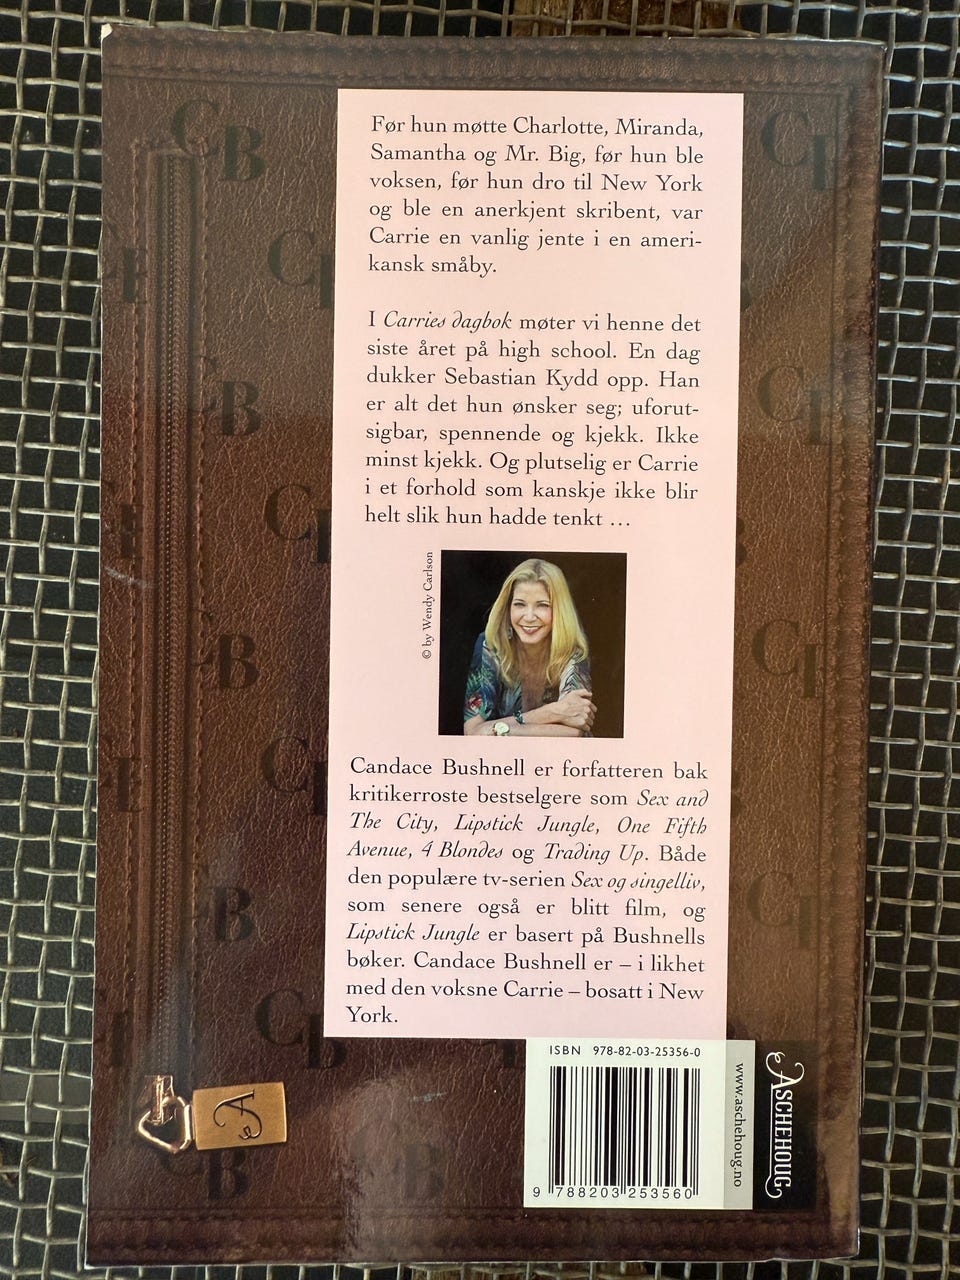 Før hun møtte Charlotte, Miranda,
Samantha og Mr. Big, før hun ble
voksen, før hun dro til New York
og ble en anerkjent skribent, var
Carrie en vanlig jente i en ameri-
kansk småby.
I Carries dagbok møter vi henne det
siste året på high school. En dag
dukker Sebastian Kydd opp. Han
er alt det hun ønsker seg; uforut-
sigbar, spennende og kjekk. Ikke
minst kjekk. Og plutselig er Carrie
i et forhold som kanskje ikke blir
helt slik hun hadde tenkt …
© by Wendy Carlson
Candace Bushnell er forfatteren bak
kritikerroste bestselgere som Sex and
The City, Lipstick Jungle, One Fifth
Avenue, 4 Blondes og Trading Up. Både
den populære tv-serien Sex og singelliv,
som senere også er blitt film, og
Lipstick Jungle er basert på Bushnells
bøker. Candace Bushnell er – i likhet
med den voksne Carrie – bosatt i New
York.
ISBN 978-82-03-25356-0
9 788203 253560
www.aschehoug.no
ASCHEHOUG
A
CB
CB
CB
CB
CB
CB
CB
CB
CB